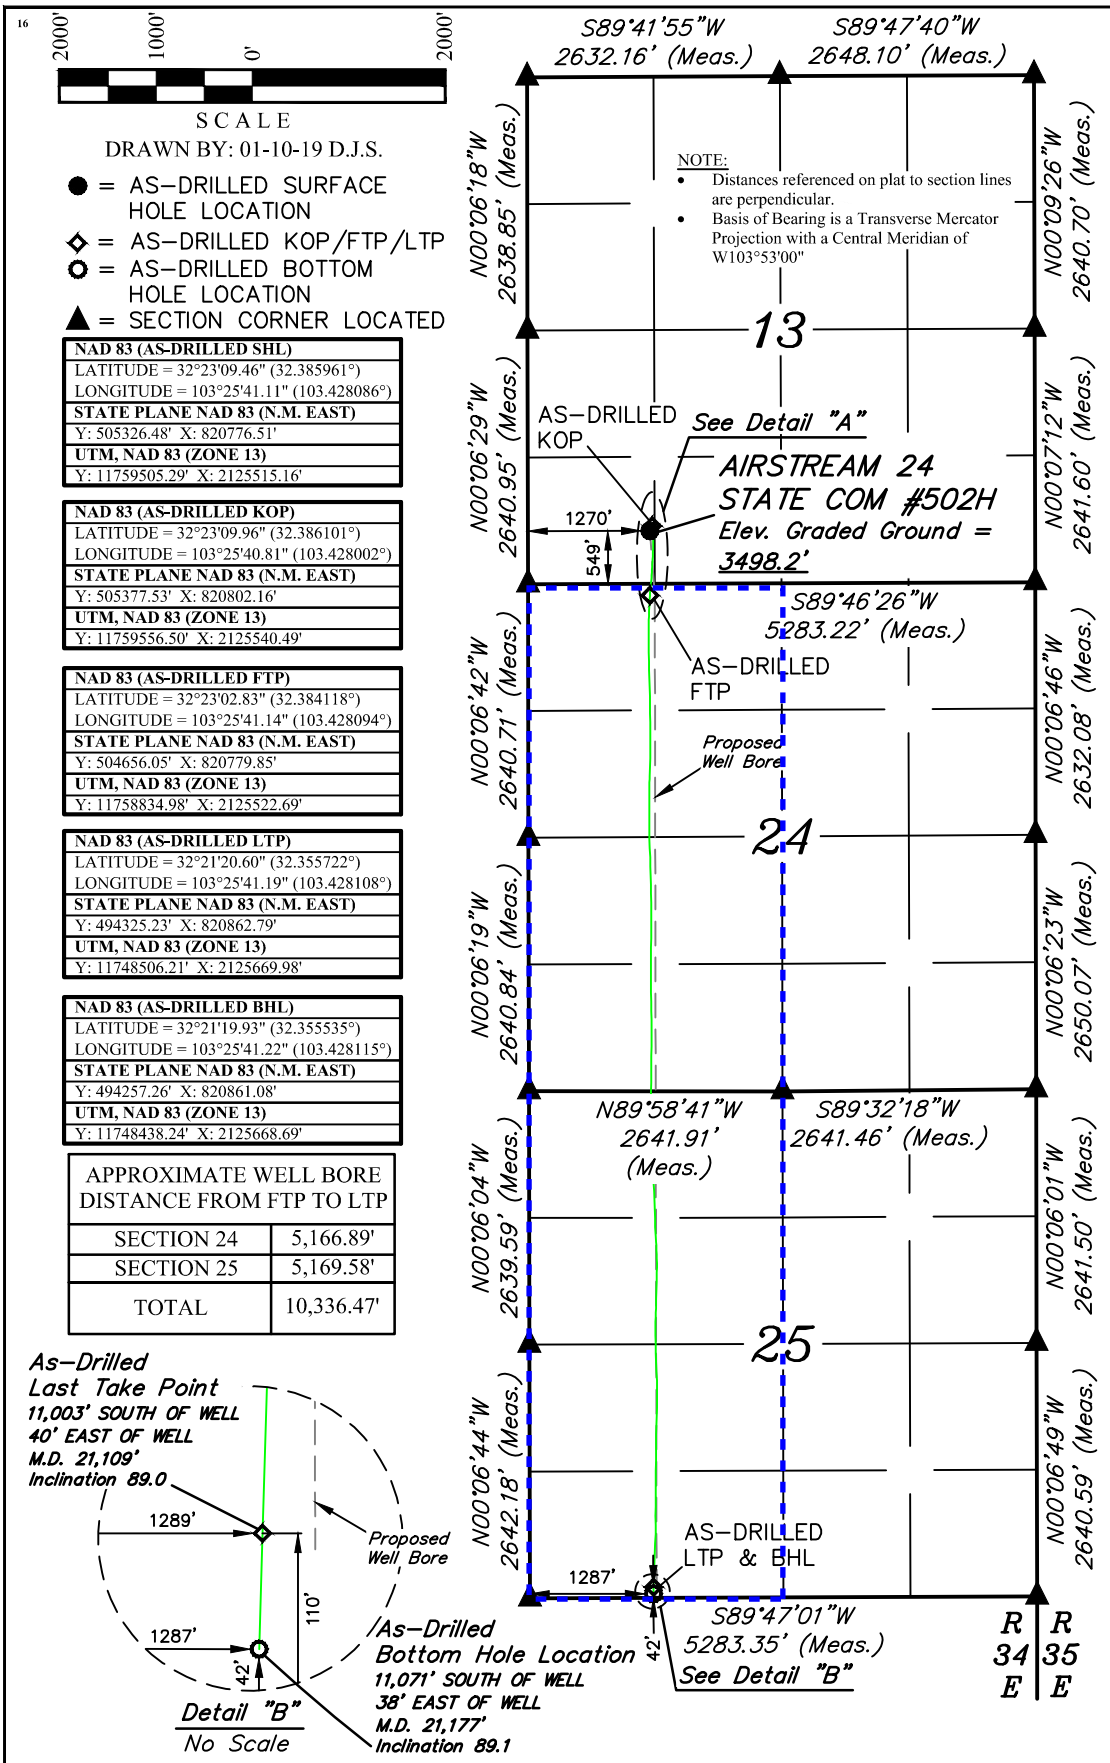 16
2000'
1000'
0'
2000'
SCALE
DRAWN BY: 01-10-19 D.J.S.
= AS-DRILLED SURFACE
HOLE LOCATION
= AS-DRILLED KOP/FTP/LTP
= AS-DRILLED BOTTOM
HOLE LOCATION
= SECTION CORNER LOCATED
NAD 83 (AS-DRILLED SHL)
LATITUDE = 32°23'09.46" (32.385961°)
LONGITUDE = 103°25'41.11" (103.428086°)
STATE PLANE NAD 83 (N.M. EAST)
Y: 505326.48' X: 820776.51'
UTM, NAD 83 (ZONE 13)
Y: 11759505.29' X: 2125515.16'
NAD 83 (AS-DRILLED KOP)
LATITUDE = 32°23'09.96" (32.386101°)
LONGITUDE = 103°25'40.81" (103.428002°)
STATE PLANE NAD 83 (N.M. EAST)
Y: 505377.53' X: 820802.16'
UTM, NAD 83 (ZONE 13)
Y: 11759556.50' X: 2125540.49'
NAD 83 (AS-DRILLED FTP)
LATITUDE = 32°23'02.83" (32.384118°)
LONGITUDE = 103°25'41.14" (103.428094°)
STATE PLANE NAD 83 (N.M. EAST)
Y: 504656.05' X: 820779.85'
UTM, NAD 83 (ZONE 13)
Y: 11758834.98' X: 2125522.69'
NAD 83 (AS-DRILLED LTP)
LATITUDE = 32°21'20.60" (32.355722°)
LONGITUDE = 103°25'41.19" (103.428108°)
STATE PLANE NAD 83 (N.M. EAST)
Y: 494325.23' X: 820862.79'
UTM, NAD 83 (ZONE 13)
Y: 11748506.21' X: 2125669.98'
NAD 83 (AS-DRILLED BHL)
LATITUDE = 32°21'19.93" (32.355535°)
LONGITUDE = 103°25'41.22" (103.428115°)
STATE PLANE NAD 83 (N.M. EAST)
Y: 494257.26' X: 820861.08'
UTM, NAD 83 (ZONE 13)
Y: 11748438.24' X: 2125668.69'
APPROXIMATE WELL BORE
DISTANCE FROM FTP TO LTP
SECTION 24 5,166.89'
SECTION 25 5,169.58'
TOTAL 10,336.47'
As-Drilled
Last Take Point
11,003' SOUTH OF WELL
40' EAST OF WELL
M.D. 21,109'
Inclination 89.0
1289'
Proposed
Well Bore
110'
1287'
42'
Detail "B"
No Scale
As-Drilled
Bottom Hole Location
11,071' SOUTH OF WELL
38' EAST OF WELL
M.D. 21,177'
Inclination 89.1
S89°41'55"W
2632.16' (Meas.)
S89°47'40"W
2648.10' (Meas.)
N00°06'18"W
2638.85' (Meas.)
NOTE:
• Distances referenced on plat to section lines
are perpendicular.
• Basis of Bearing is a Transverse Mercator
Projection with a Central Meridian of
W103°53'00"
N00°09'26"W
2640.70' (Meas.)
13
N00°06'29"W
2640.95' (Meas.)
AS-DRILLED
KOP
See Detail "A"
AIRSTREAM 24
STATE COM #502H
Elev. Graded Ground =
3498.2'
1270'
549'
N00°07'12"W
2641.60' (Meas.)
S89°46'26"W
5283.22' (Meas.)
AS-DRILLED
FTP
N00°06'42"W
2640.71' (Meas.)
Proposed
Well Bore
N00°06'46"W
2632.08' (Meas.)
24
N00°06'19"W
2640.84' (Meas.)
N00°06'23"W
2650.07' (Meas.)
N89°58'41"W
2641.91'
(Meas.)
S89°32'18"W
2641.46' (Meas.)
N00°06'04"W
2639.59' (Meas.)
N00°06'01"W
2641.50' (Meas.)
25
N00°06'44"W
2642.18' (Meas.)
N00°06'49"W
2640.59' (Meas.)
AS-DRILLED
LTP & BHL
1287'
42'
S89°47'01"W
5283.35' (Meas.)
See Detail "B"
R R
34 35
E E